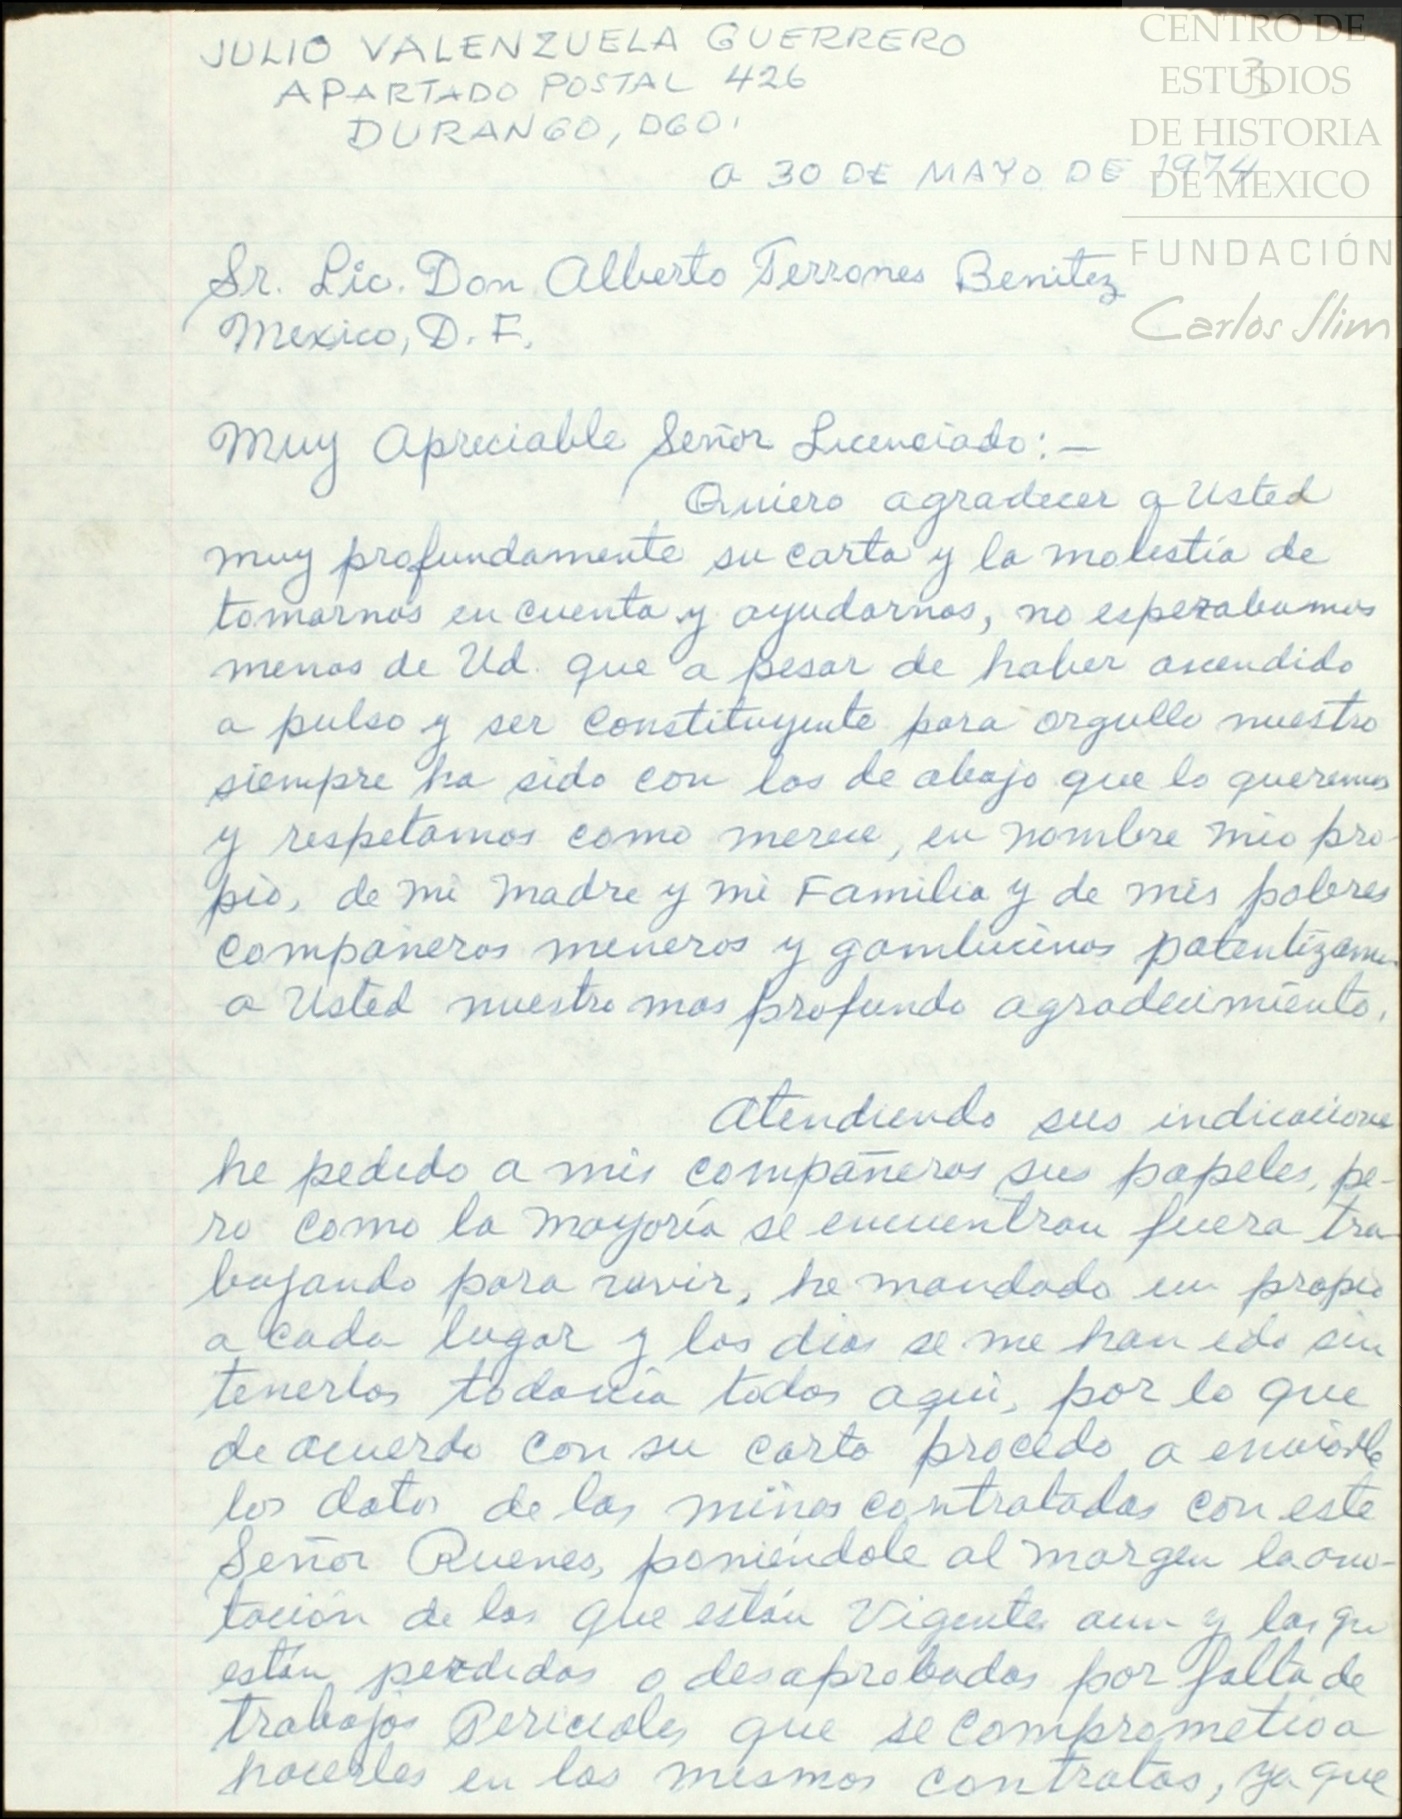 JULIO VALENZUELA GUERRERO
APARTADO POSTAL 426
DURANGO, DGO.
a 30 DE MAYO DE 1974
3
CENTRO DE
ESTUDIOS
DE HISTORIA
DE MEXICO
FUNDACIÓN
Carlos Slim
Sr. Lic. Don Alberto Terrones Benitez
Mexico, D. F.
Muy Apreciable Señor Licenciado:—
Quiero agradecer a Usted
muy profundamente su carta y la molestia de
tomarnos en cuenta y ayudarnos, no esperabamos
menos de Ud. que a pesar de haber ascendido
a pulso y ser Constituyente para orgullo nuestro
siempre ha sido con los de abajo que lo queremos
y respetamos como merece, en nombre mio pro-
pio, de mi madre y mi Familia y de mis pobres
compañeros mineros y gambucinos patentizamo
a Usted nuestro mas profundo agradecimiento.
Atendiendo sus indicacione
he pedido a mis compañeros sus papeles, pe-
ro como la mayoría se encuentran fuera tra-
bajando para vivir, he mandado un propio
a cada lugar y los dias se me han ido sin
tenerlos todavia todos aqui, por lo que
de acuerdo con su carta procedo a enviarle
los datos de las minas contratadas con este
Señor Ruenes, poniéndole al margen la ano-
tación de las que están Vigentes aun y las qu
están perdidas o desaprobadas por falta de
trabajos Periciales que se comprometio a
hacerles en los mismos contratos, ya que